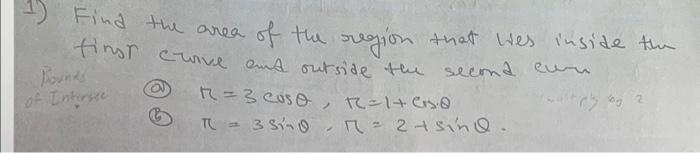 1) Find the area of the region that lies inside the
first curve and outside the second curv
Bounds
of Intersec
(a) r = 3 cosθ, r = 1 + cosθ
multiply by 2
(b) r = 3 sinθ, r = 2 + sinθ.